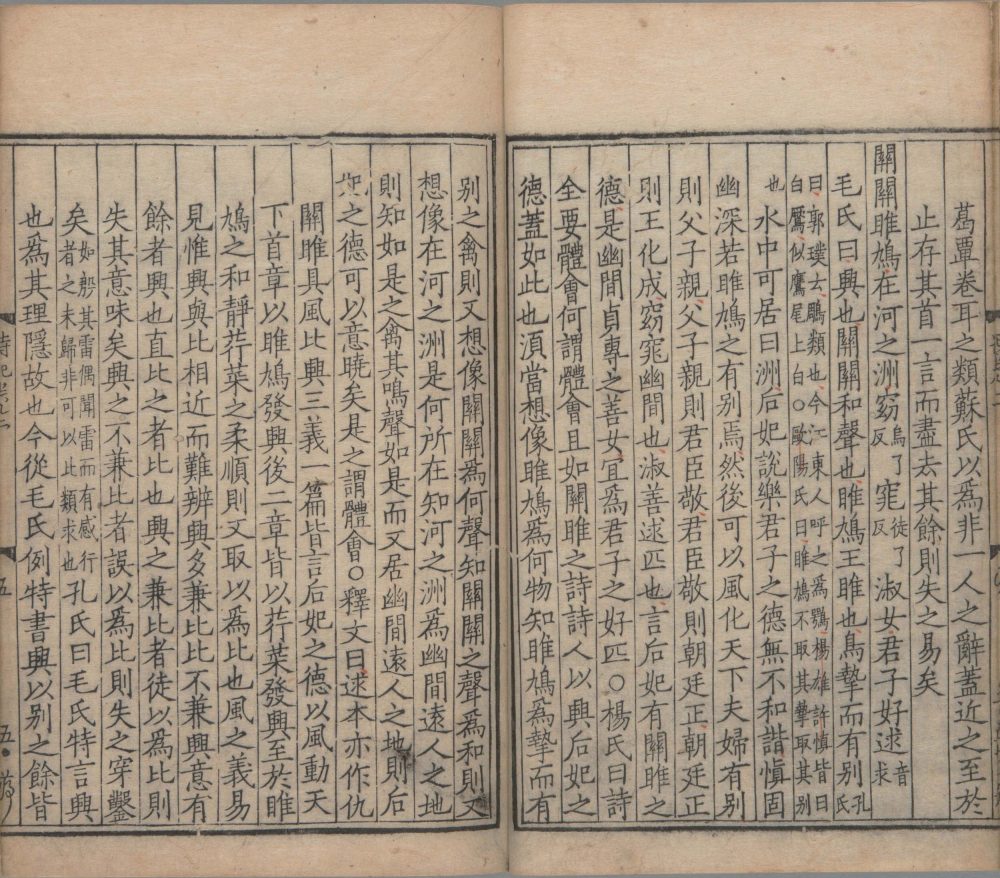 葛覃卷耳之類蘇氏以為非一人之辭蓋近之至於
止存其首一言而盡去其餘則失之易矣
關關雎鳩在河之洲窈烏了反窕徒了反淑女君子好逑音求
毛氏曰興也關關和聲也雎鳩王雎也鳥摯而有別孔氏
曰郭璞云鵰類也今江東人呼之為鶚楊雄許慎皆曰
白鷢似鷹尾上白○歐陽氏曰雎鳩不取其摯取其別
也水中可居曰洲后妃說樂君子之德無不和諧慎固
幽深若雎鳩之有別焉然後可以風化天下夫婦有別
則父子親父子親則君臣敬君臣敬則朝廷正朝廷正
則王化成窈窕幽閒也淑善逑匹也言后妃有關雎之
德是幽閒貞專之善女宜為君子之好匹○楊氏曰詩
全要體會何謂體會且如關雎之詩詩人以興后妃之
德蓋如此也湏當想像雎鳩為何物知雎鳩為摯而有
別之禽則又想像關關為何聲知關關之聲為和則又
想像在河之洲是何所在知河之洲為幽閒遠人之地
則知如是之禽其鳴聲如是而又居幽閒遠人之地則后
妃之德可以意曉矣是之謂體會○釋文曰逑本亦作仇
關雎具風比興三義一篇皆言后妃之德以風動天
下首章以雎鳩發興後二章皆以荇菜發興至於雎
鳩之和靜荇菜之柔順則又取以為比也風之義易
見惟興與比相近而難辨興多兼比比不兼興意有
餘者興也直比之者比也興之兼比者徒以為比則
失其意味矣興之不兼比者誤以為比則失之穿鑿
矣如殷其雷偶聞雷而有感行者之未歸非可以此類求也孔氏曰毛氏特言興
也為其理隱故也今從毛氏例特書興以別之餘皆
五